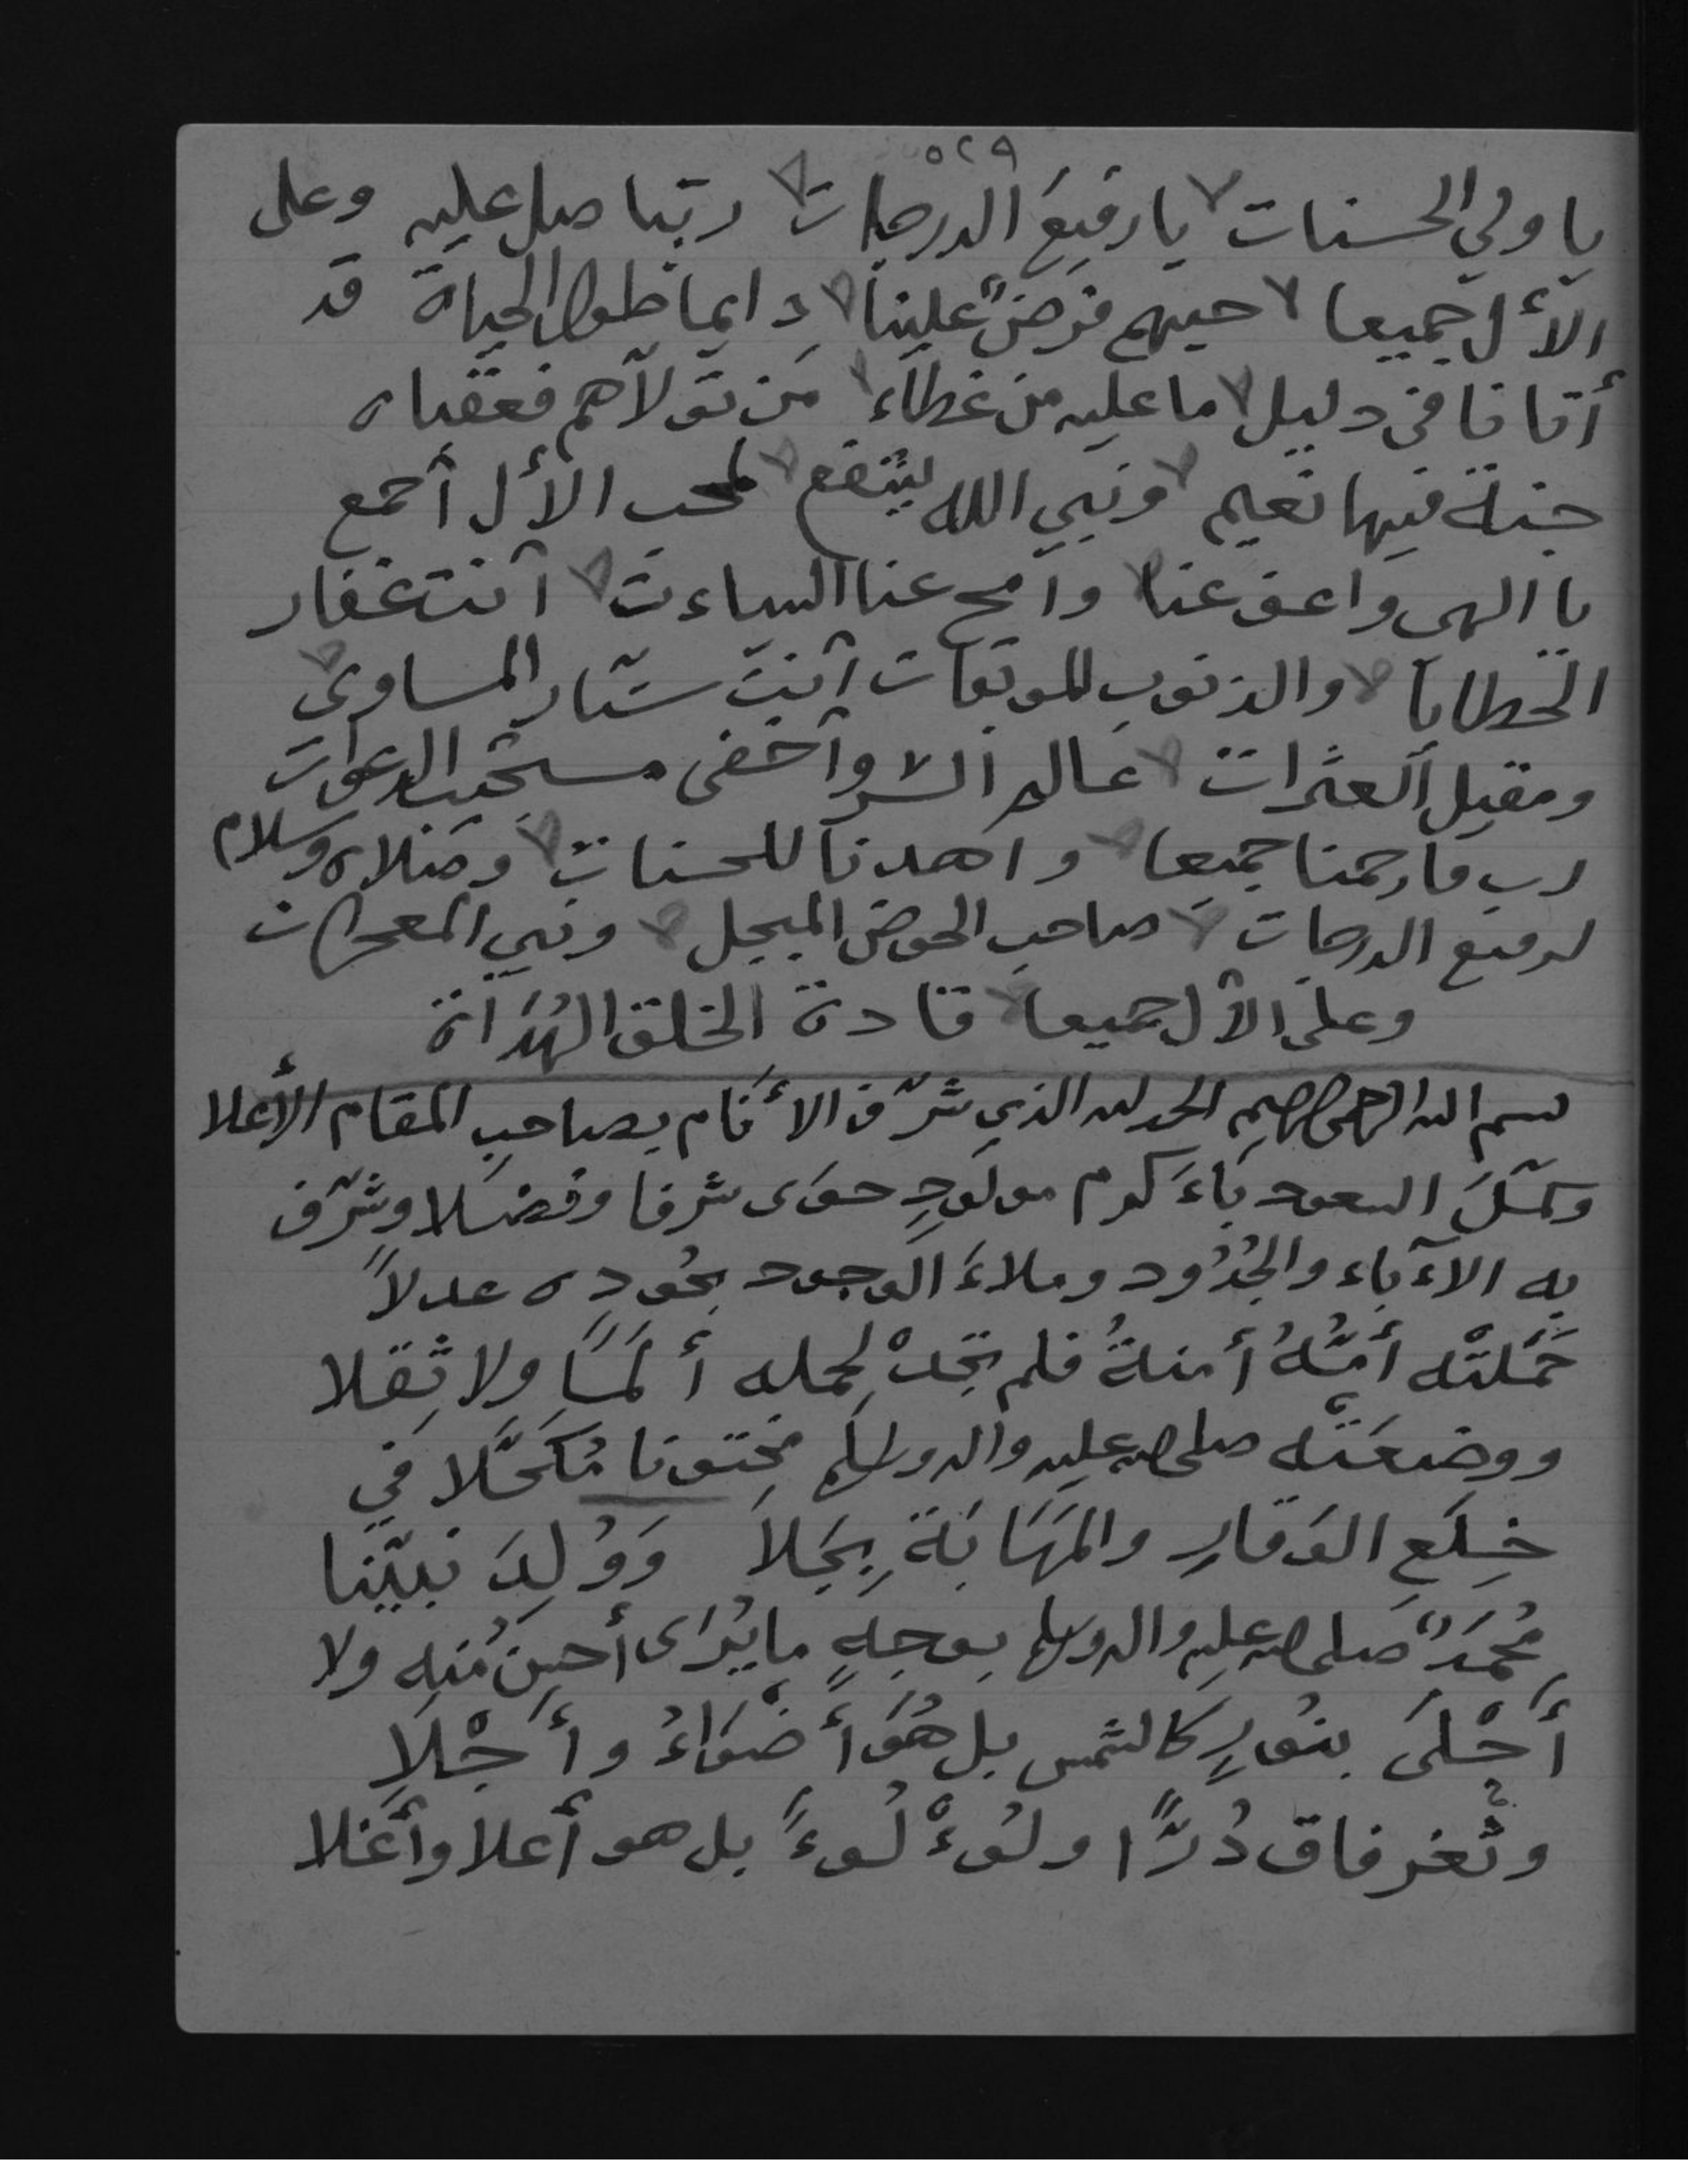 ٥٢٩
يا ولي الحسنات يا رفيعَ الدرجات ربّنا صل عليه وعلى
الأل جميعا حبهم فرضٌ علينا دايما طول الحياة قد
أتانا في دليل ما عليه من غطاء من تولاهم فعقباه
جنة فيها نعيم ونبي الله يشفع لمحب الأل أجمع
يا الهي واعف عنا وامح عنا السياءت أنت غفار
الخطايا والذنوب الموبقات أنت ستّار المساوي
ومقيل العثرات عالم السر وأخفى مستجيب الدعوات
رب فارحمنا جميعا واهدنا للحسنات وصلاه وسلام
لرفيع الدرجات صاحب الحوض المبجل ونبي المعجزات
وعلى الأل جميعا قادة الخلق الهُدَاة
بسم الله الرحمن الرحيم الحمد لله الذي شرّف الأنام بصاحب المقام الأعلا
وكمّلَ السعود بأكرم مولودٍ حوى شرفا وفضلا وشرّف
به الآباء والجُدُود وملاءَ الوجود بجُودِه عدلاً
حَمَلتْه أمُّهُ أمنةُ فلم تجدْ لحمله ألَمًا ولا ثِقلا
ووضعَتْه صلى الله عليه واله وسلم مختونا مُكَحَّلا في
خِلَعِ الوَقارِ والمَهَابَةِ بِجَلاَ وَوُلِدَ نبيّنا
مُحمَدٌ صلى الله عليه واله وسلم بوجهٍ ما يُرَى أحسن مُنه ولا
أَحْلَى بنُورٍ كالشمس بل هُوَ أَضْوَاءُ وأَجْلاَ
وثُغر فاق دُرًّا ولُوءْلُوءً بل هو أعلا وأغلا